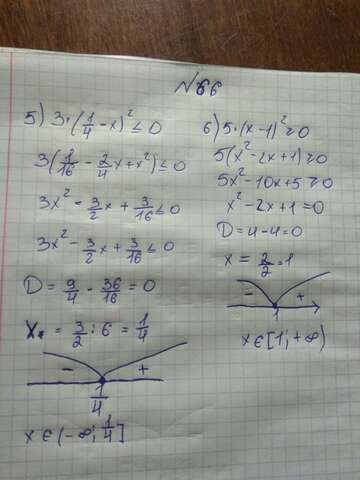 №66
5) 3·(1/4 - x)² ≤ 0
3(1/16 - 2/4x + x²) ≤ 0
3x² - 3/2x + 3/16 ≤ 0
3x² - 3/2x + 3/16 ≤ 0
D = 9/4 - 36/16 = 0
x = 3/2 : 6 = 1/4
- +
1/4
x ∈ (-∞; 1/4]
6) 5·(x-1)² ≥ 0
5(x² - 2x + 1) ≥ 0
5x² - 10x + 5 ≥ 0
x² - 2x + 1 = 0
D = 4 - 4 = 0
x = 2/2 = 1
- +
1
x ∈ [1; +∞)